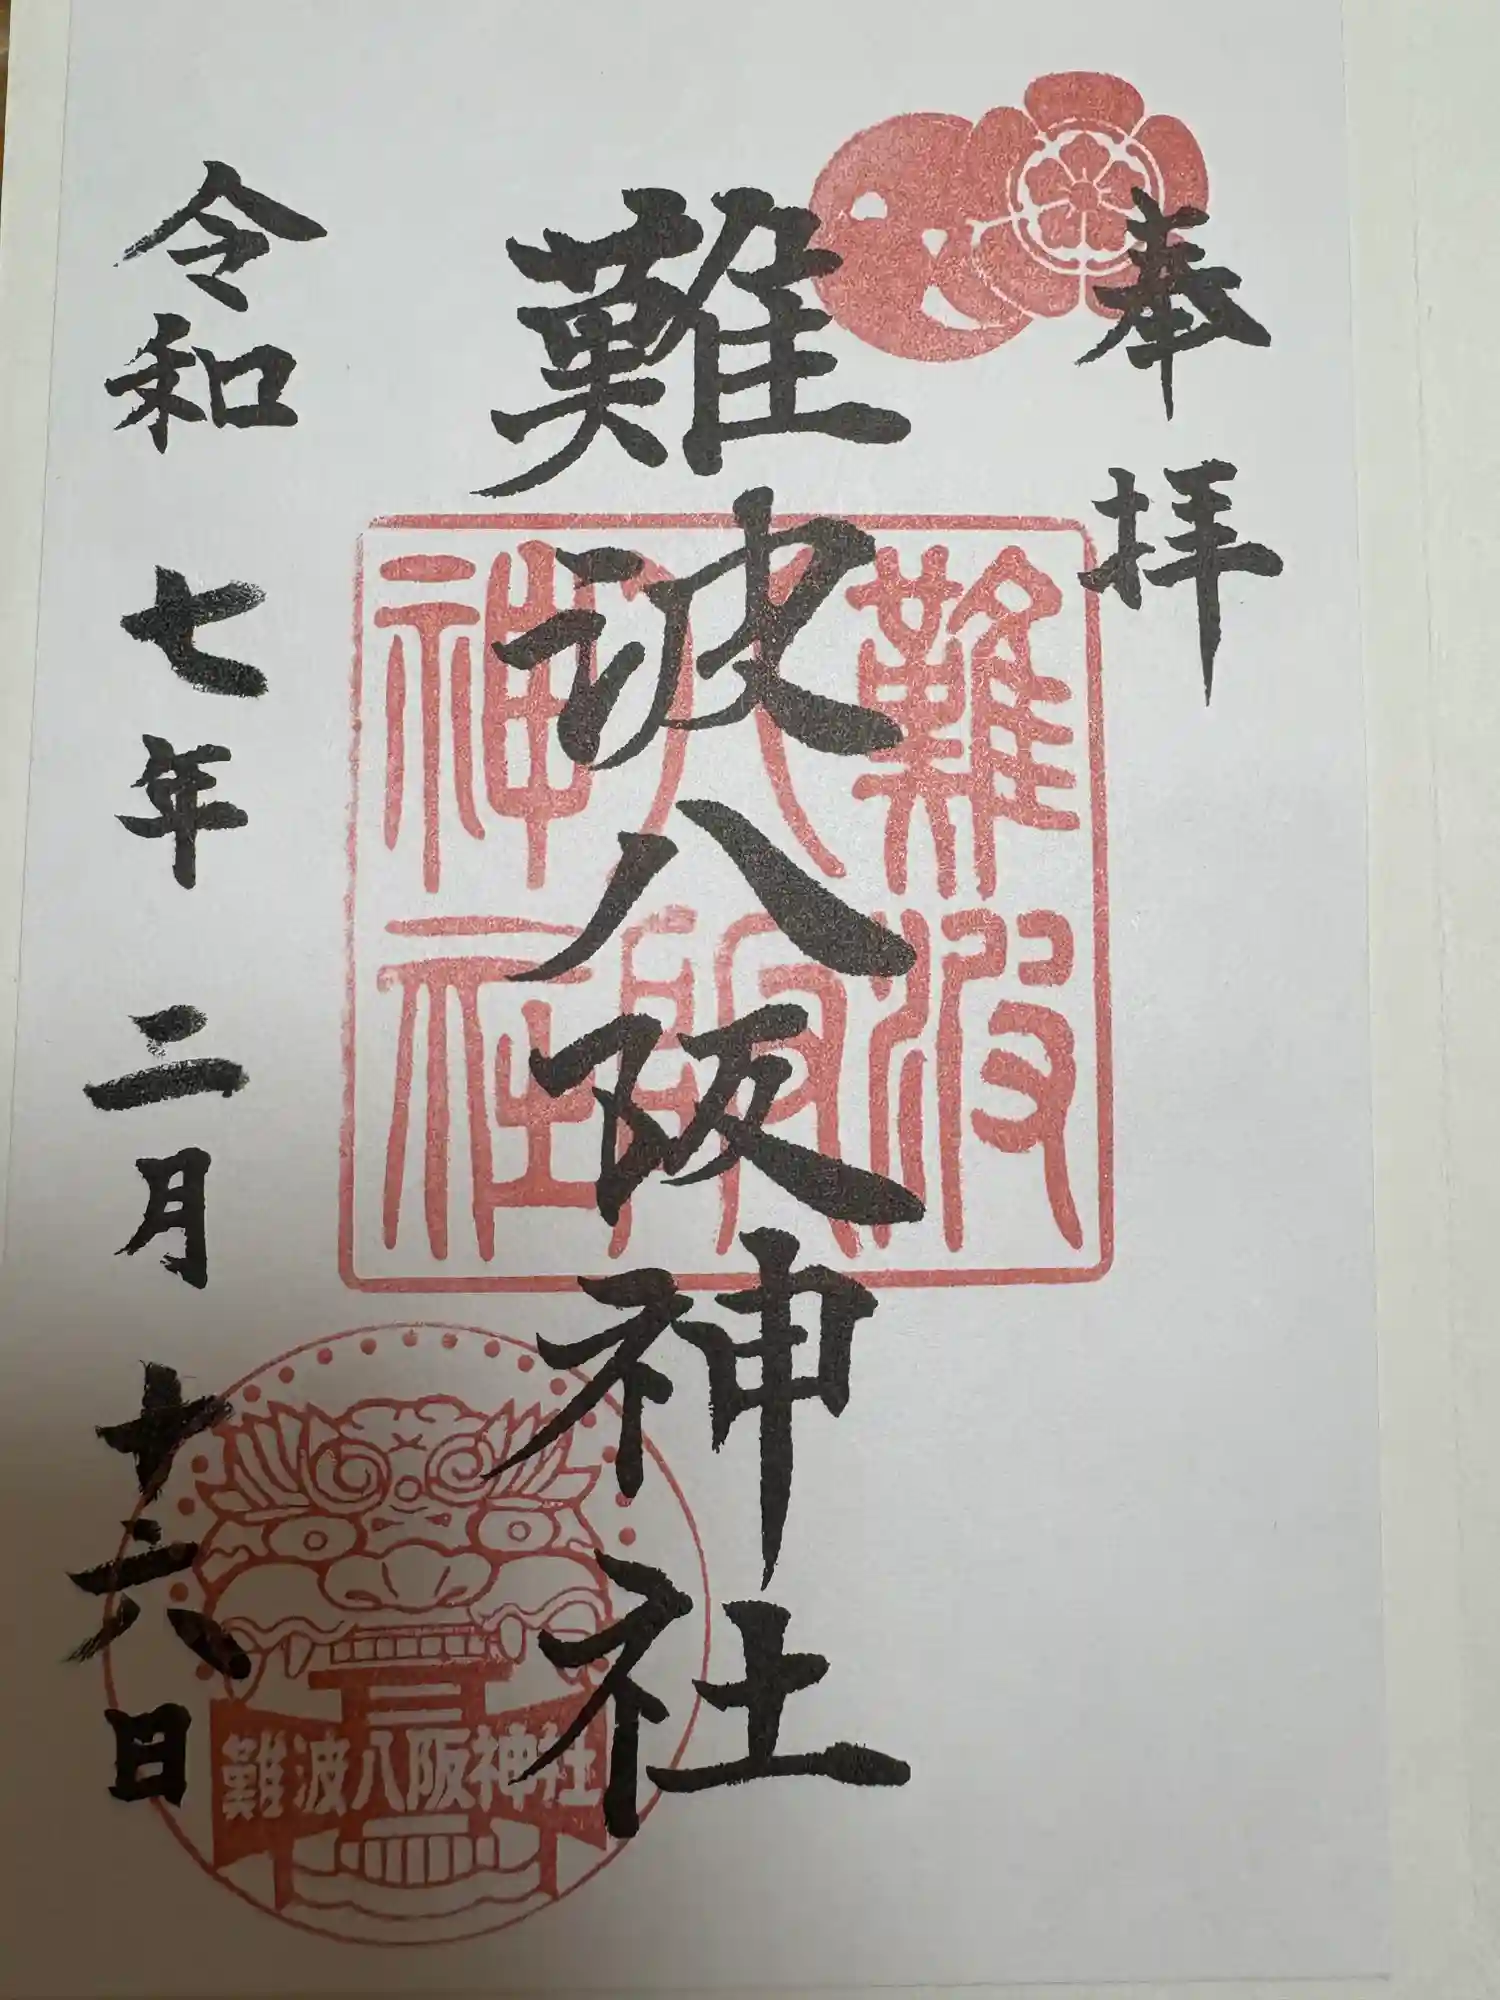 奉拝
難波八阪神社
令和七年二月十六日
難波
八阪
神社
難波八阪神社